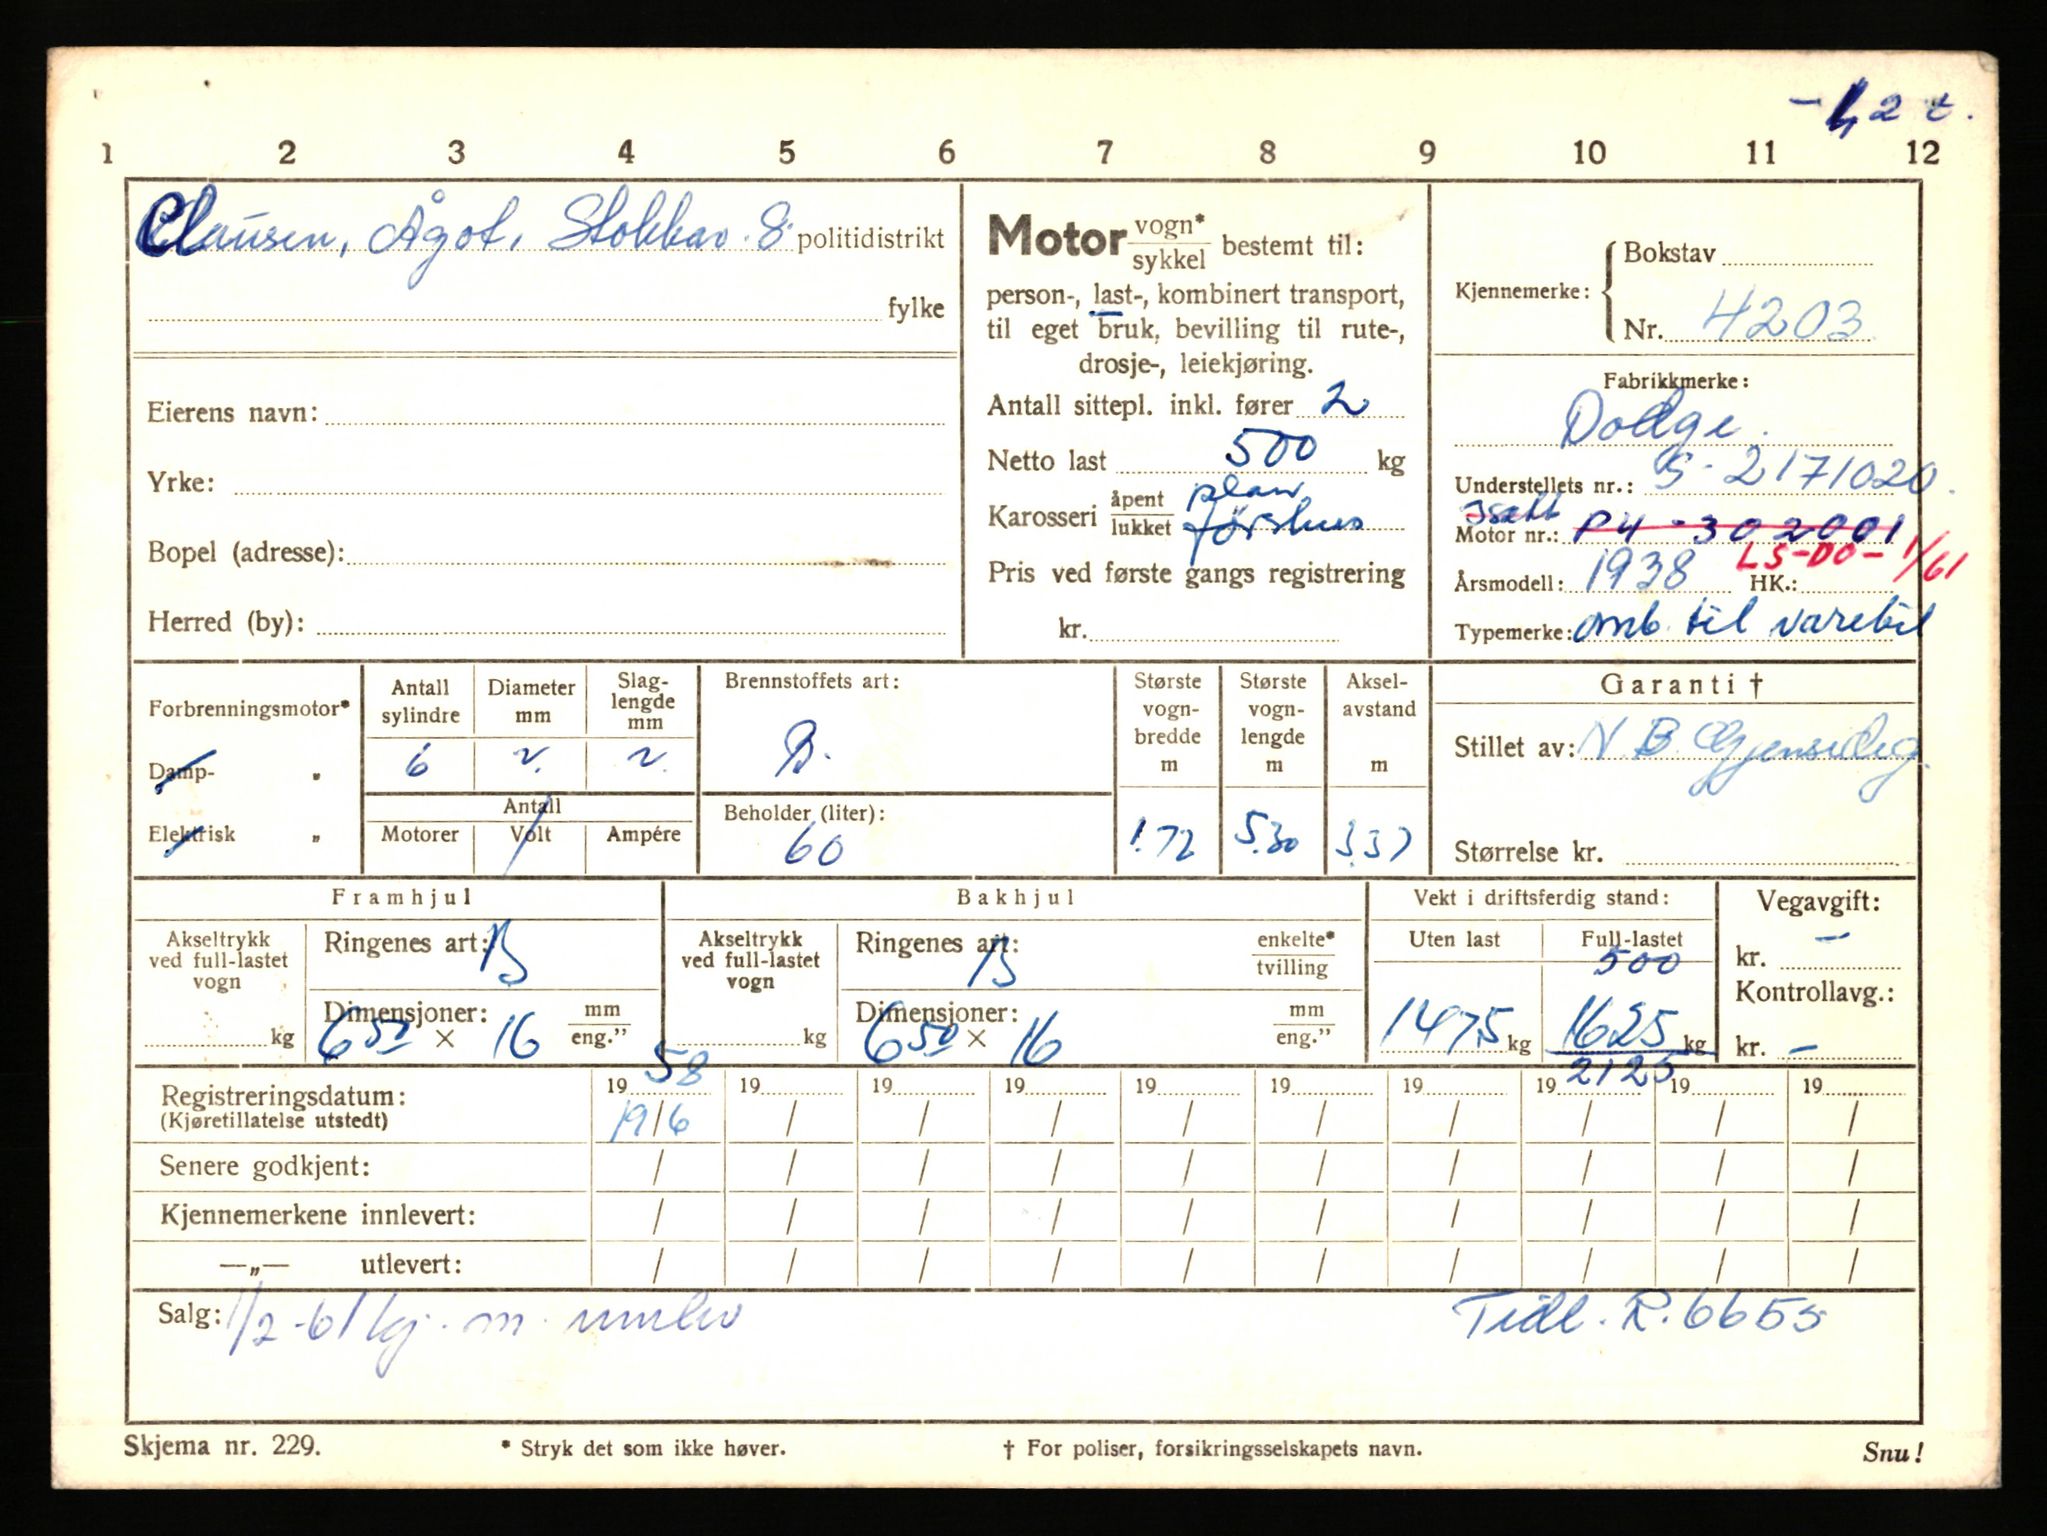 - 1,2 t.
1 2 3 4 5 6 7 8 9 10 11 12
Clausen, Ågot, Stokkav. 8. politidistrikt
fylke
Eierens navn:
Yrke:
Bopel (adresse):
Herred (by):
Motor vogn* sykkel bestemt til:
person-, last-, kombinert transport,
til eget bruk, bevilling til rute-,
drosje-, leiekjøring.
Antall sittepl. inkl. fører 2
Netto last 500 kg
Karosseri åpent lukket plan førerhus
Pris ved første gangs registrering
kr.
Kjennemerke: Bokstav
Nr. 4203
Fabrikkmerke:
Dodge.
Understellets nr.: S-2171020.
Isatt
Motor nr.: P4-302001
LS-DO-1/61
Årsmodell: 1938 HK.:
Typemerke: omb. til varebil
Forbrenningsmotor*
Damp- „
Elektrisk „
Antall sylindre
6
Diameter mm
Slaglengde mm
Antall
Motorer Volt Ampére
Brennstoffets art:
B.
Beholder (liter):
60
Største vognbredde m
1.72
Største vognlengde m
5.30
Akselavstand m
3.37
Garanti †
Stillet av: N. B. Gjensidig.
Størrelse kr.
Framhjul
Akseltrykk ved full-lastet vogn
kg
Ringenes art: B
Dimensjoner: mm eng.”
6 50 × 16
Bakhjul
Akseltrykk ved full-lastet vogn
kg
Ringenes art: B enkelte* tvilling
Dimensjoner: mm eng.”
6 50 × 16
Vekt i driftsferdig stand:
Uten last Full-lastet
500
1475 kg 1625 kg
2125
Vegavgift:
kr. -
Kontrollavg.:
kr. -
Registreringsdatum: 19 58 19 19 19 19 19 19 19 19 19
(Kjøretillatelse utstedt) 19/6 / / / / / / / / /
Senere godkjent: / / / / / / / / / /
Kjennemerkene innlevert: / / / / / / / / / /
—„— utlevert: / / / / / / / / / /
Salg: 1/2-61 kj. m. innlev Tidl. R. 6653
Skjema nr. 229. * Stryk det som ikke høver. † For poliser, forsikringsselskapets navn. Snu!